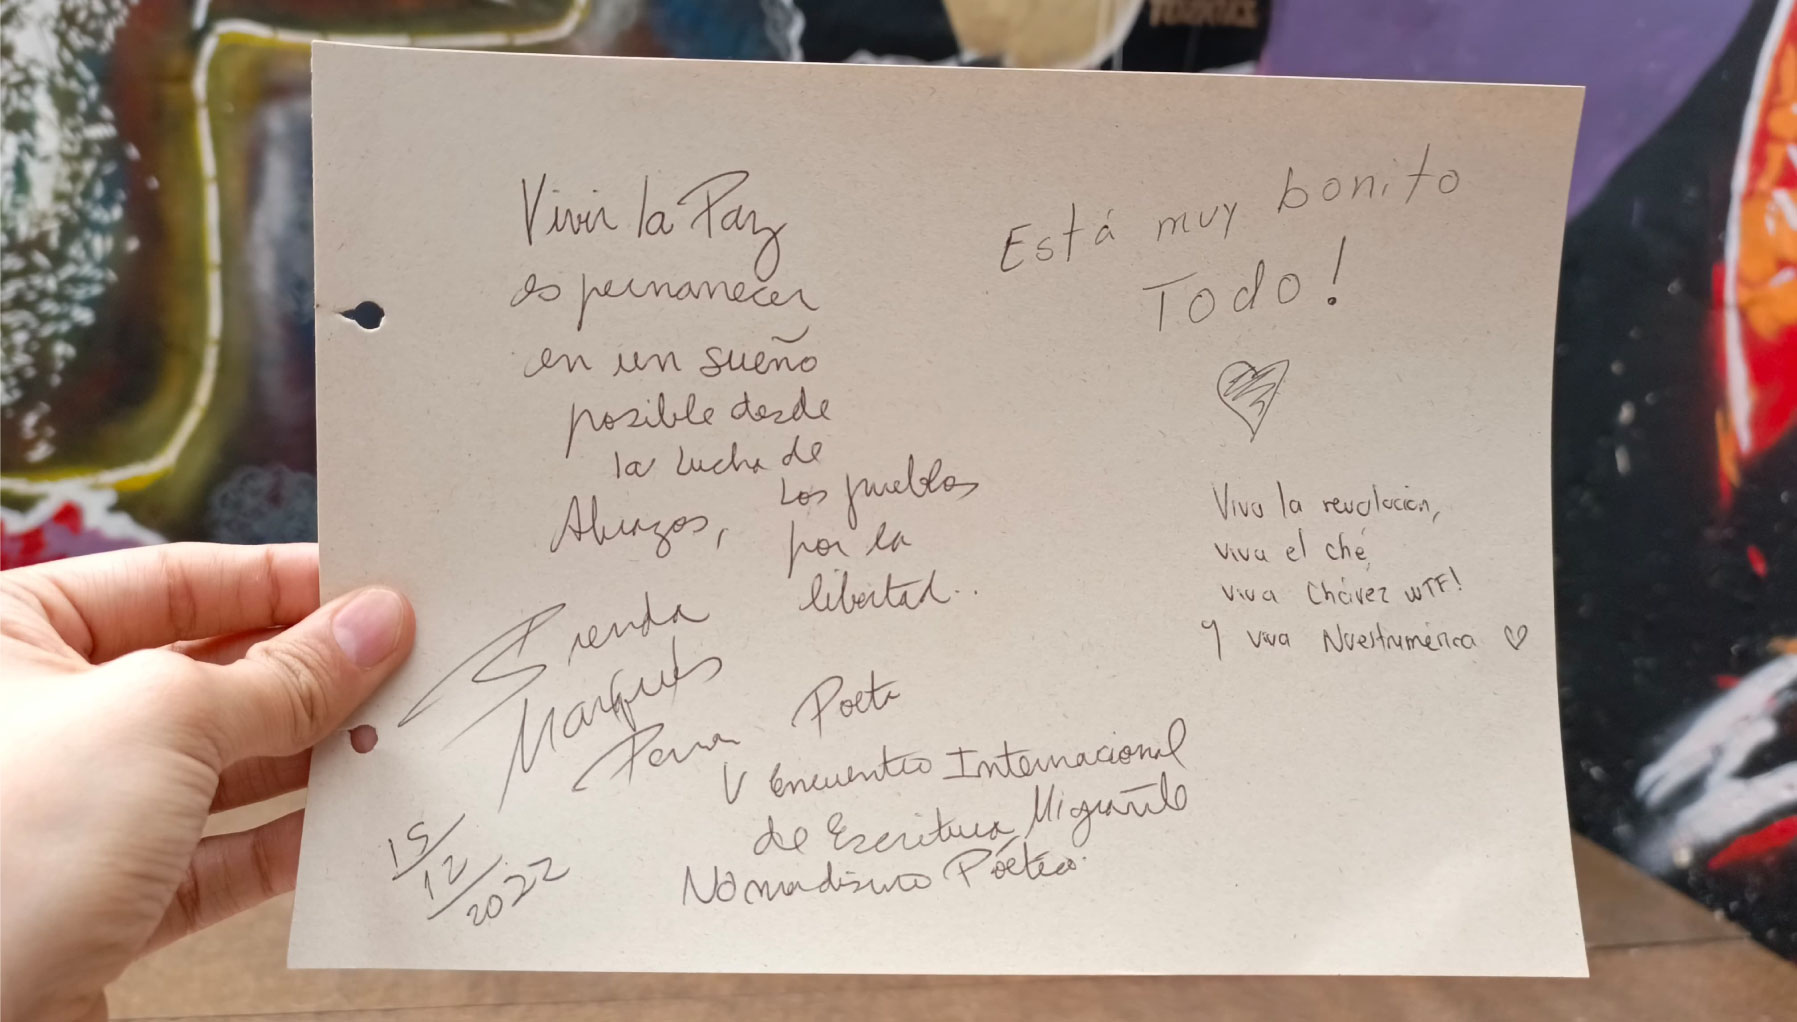 Vivir la Paz
es permanecer
en un sueño
posible desde
la lucha de
los pueblos
por la
libertad..
Abrazos,
Marqués
Poeta
V Encuentro Internacional
de Escritura Migrante
Nomadismo Poético.
15/12/2022
Está muy bonito
Todo!
Viva la revolución,
viva el ché,
viva Chávez WTF!
Y viva Nuestramérica